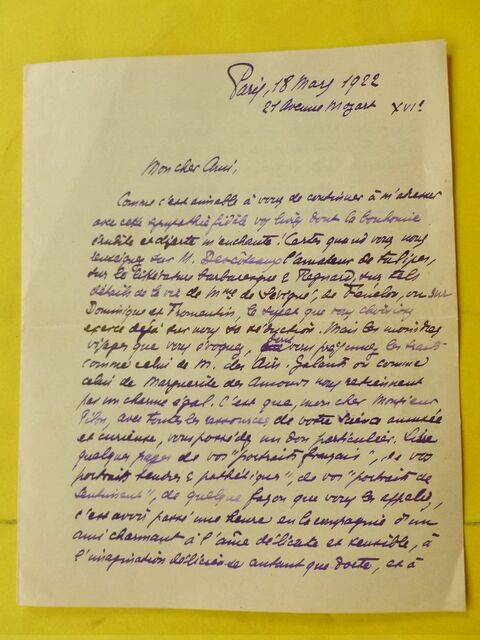 Paris, 18 Mars 1922
21 Avenue Mozart XVIe
Mon cher Ami,
Comme c'est aimable à vous de continuer à m'adresser
avec cette sympathie fidèle vos livres dont la bonhomie
érudite et diserte m'enchante! Certes quand vous nous
renseignez sur M. Descoteaux l'amateur de tulipes,
sur la littérature barbaresque & Regnard, sur tels
détails de la vie de Mme de Sévigné, de Fénelon, ou sur
Dominique et Fromentin, le sujet que vous choisissez
exerce déjà sur nous sa séduction. Mais les moindres
visages que vous évoquez, dont vous les traits
comme celui de M. des Airs Galants ou comme
celui de Marguerite des Amours nous retiennent
par un charme égal. C'est que, mon cher Monsieur
Pilon, avec toutes les ressources de votre amusée
et curieuse, vous possédez un don particulier. Lire
quelques pages de vos "portraits français", de vos
portraits tendres & pathétiques", de vos "portraits de
sentiment", de quelque façon que vous les appeliez,
c'est avoir passé une heure en la compagnie d'un
ami charmant à l'âme délicate et sensible, à
l'imagination délicieuse autant que docte, et à